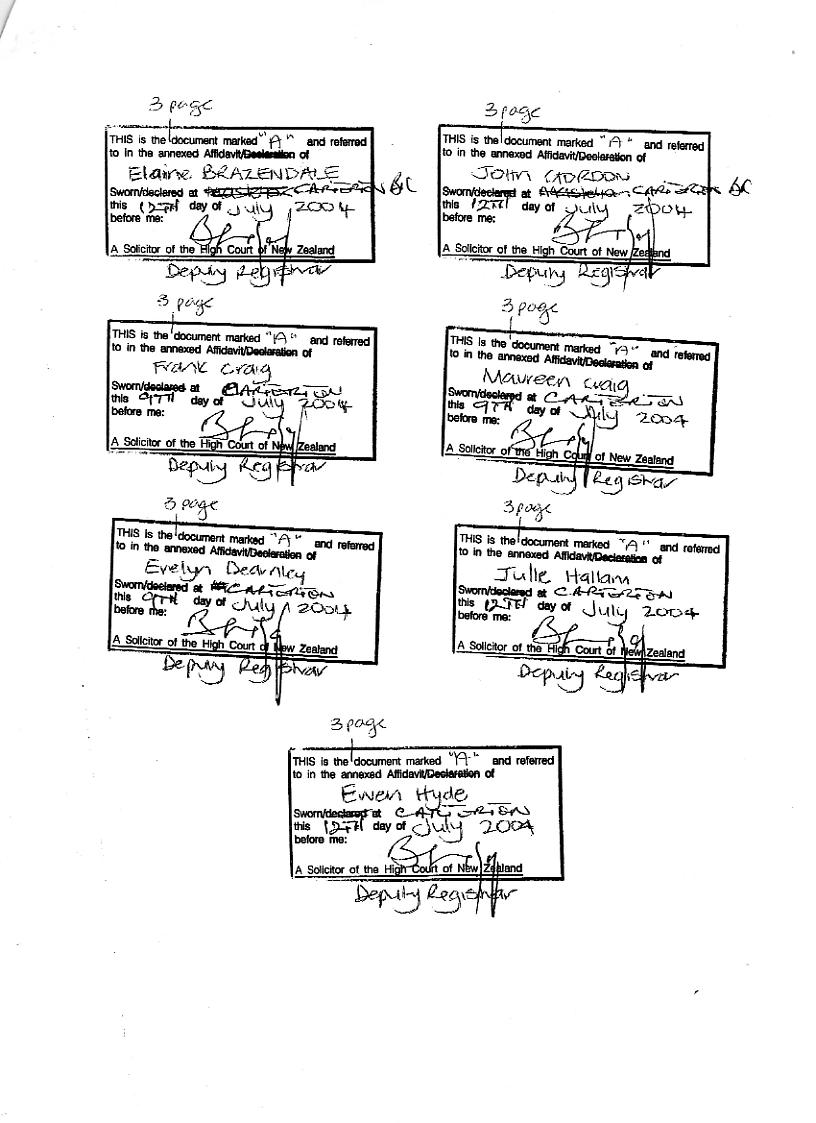 3 page
THIS is the document marked "A" and referred
to in the annexed Affidavit/Declaration of
Elaine BRAZENDALE
Sworn/declared at CARTERTON
this 12TH day of July 2004
before me:
A Solicitor of the High Court of New Zealand
Deputy Registrar
3 page
THIS is the document marked "A" and referred
to in the annexed Affidavit/Declaration of
John GORDON
Sworn/declared at CARTERTON
this 12TH day of July 2004
before me:
A Solicitor of the High Court of New Zealand
Deputy Registrar
3 page
THIS is the document marked "A" and referred
to in the annexed Affidavit/Declaration of
Frank Craig
Sworn/declared at CARTERTON
this 9TH day of July 2004
before me:
A Solicitor of the High Court of New Zealand
Deputy Registrar
3 page
THIS is the document marked "A" and referred
to in the annexed Affidavit/Declaration of
Maureen Craig
Sworn/declared at CARTERTON
this 9TH day of July 2004
before me:
A Solicitor of the High Court of New Zealand
Deputy Registrar
3 page
THIS is the document marked "A" and referred
to in the annexed Affidavit/Declaration of
Evelyn Dearnley
Sworn/declared at CARTERTON
this 9TH day of July 2004
before me:
A Solicitor of the High Court of New Zealand
Deputy Registrar
3 page
THIS is the document marked "A" and referred
to in the annexed Affidavit/Declaration of
Julie Hallam
Sworn/declared at CARTERTON
this 12TH day of July 2004
before me:
A Solicitor of the High Court of New Zealand
Deputy Registrar
3 page
THIS is the document marked "A" and referred
to in the annexed Affidavit/Declaration of
Ewen Hyde
Sworn/declared at CARTERTON
this 12TH day of July 2004
before me:
A Solicitor of the High Court of New Zealand
Deputy Registrar